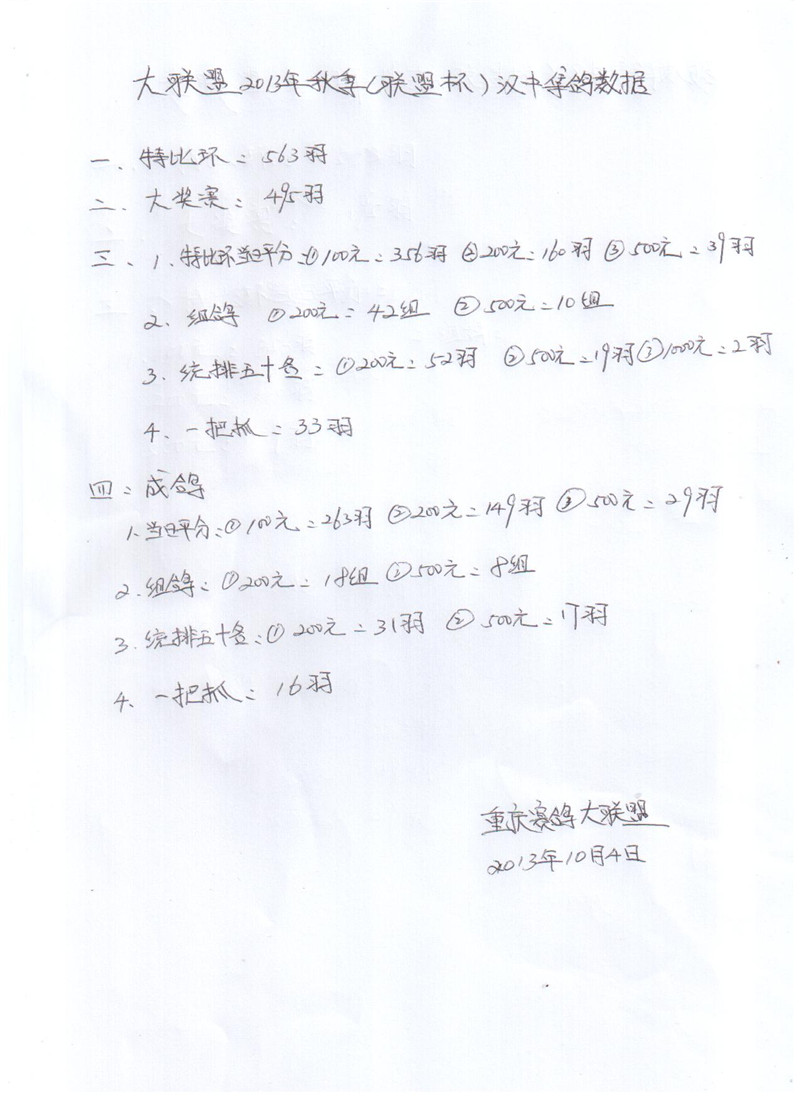 大联盟2013年秋季(联盟杯)汉中集鸽数据
一、特比环：563羽
二、大奖赛：495羽
三、1、特比环当日平分：①100元：356羽 ②200元：160羽 ③500元：39羽
2、组鸽 ①200元：42组 ②500元：10组
3、统排五十名：①200元：52羽 ②500元：19羽 ③1000元：2羽
4、一把抓：33羽
四：成鸽
1、当日平分：①100元：263羽 ②200元：149羽 ③500元：29羽
2、组鸽：①200元：18组 ②500元：8组
3、统排五十名：①200元：31羽 ②500元：17羽
4、一把抓：16羽
重庆赛鸽大联盟
2013年10月4日